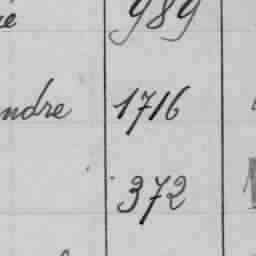 989
ndre 1716
372